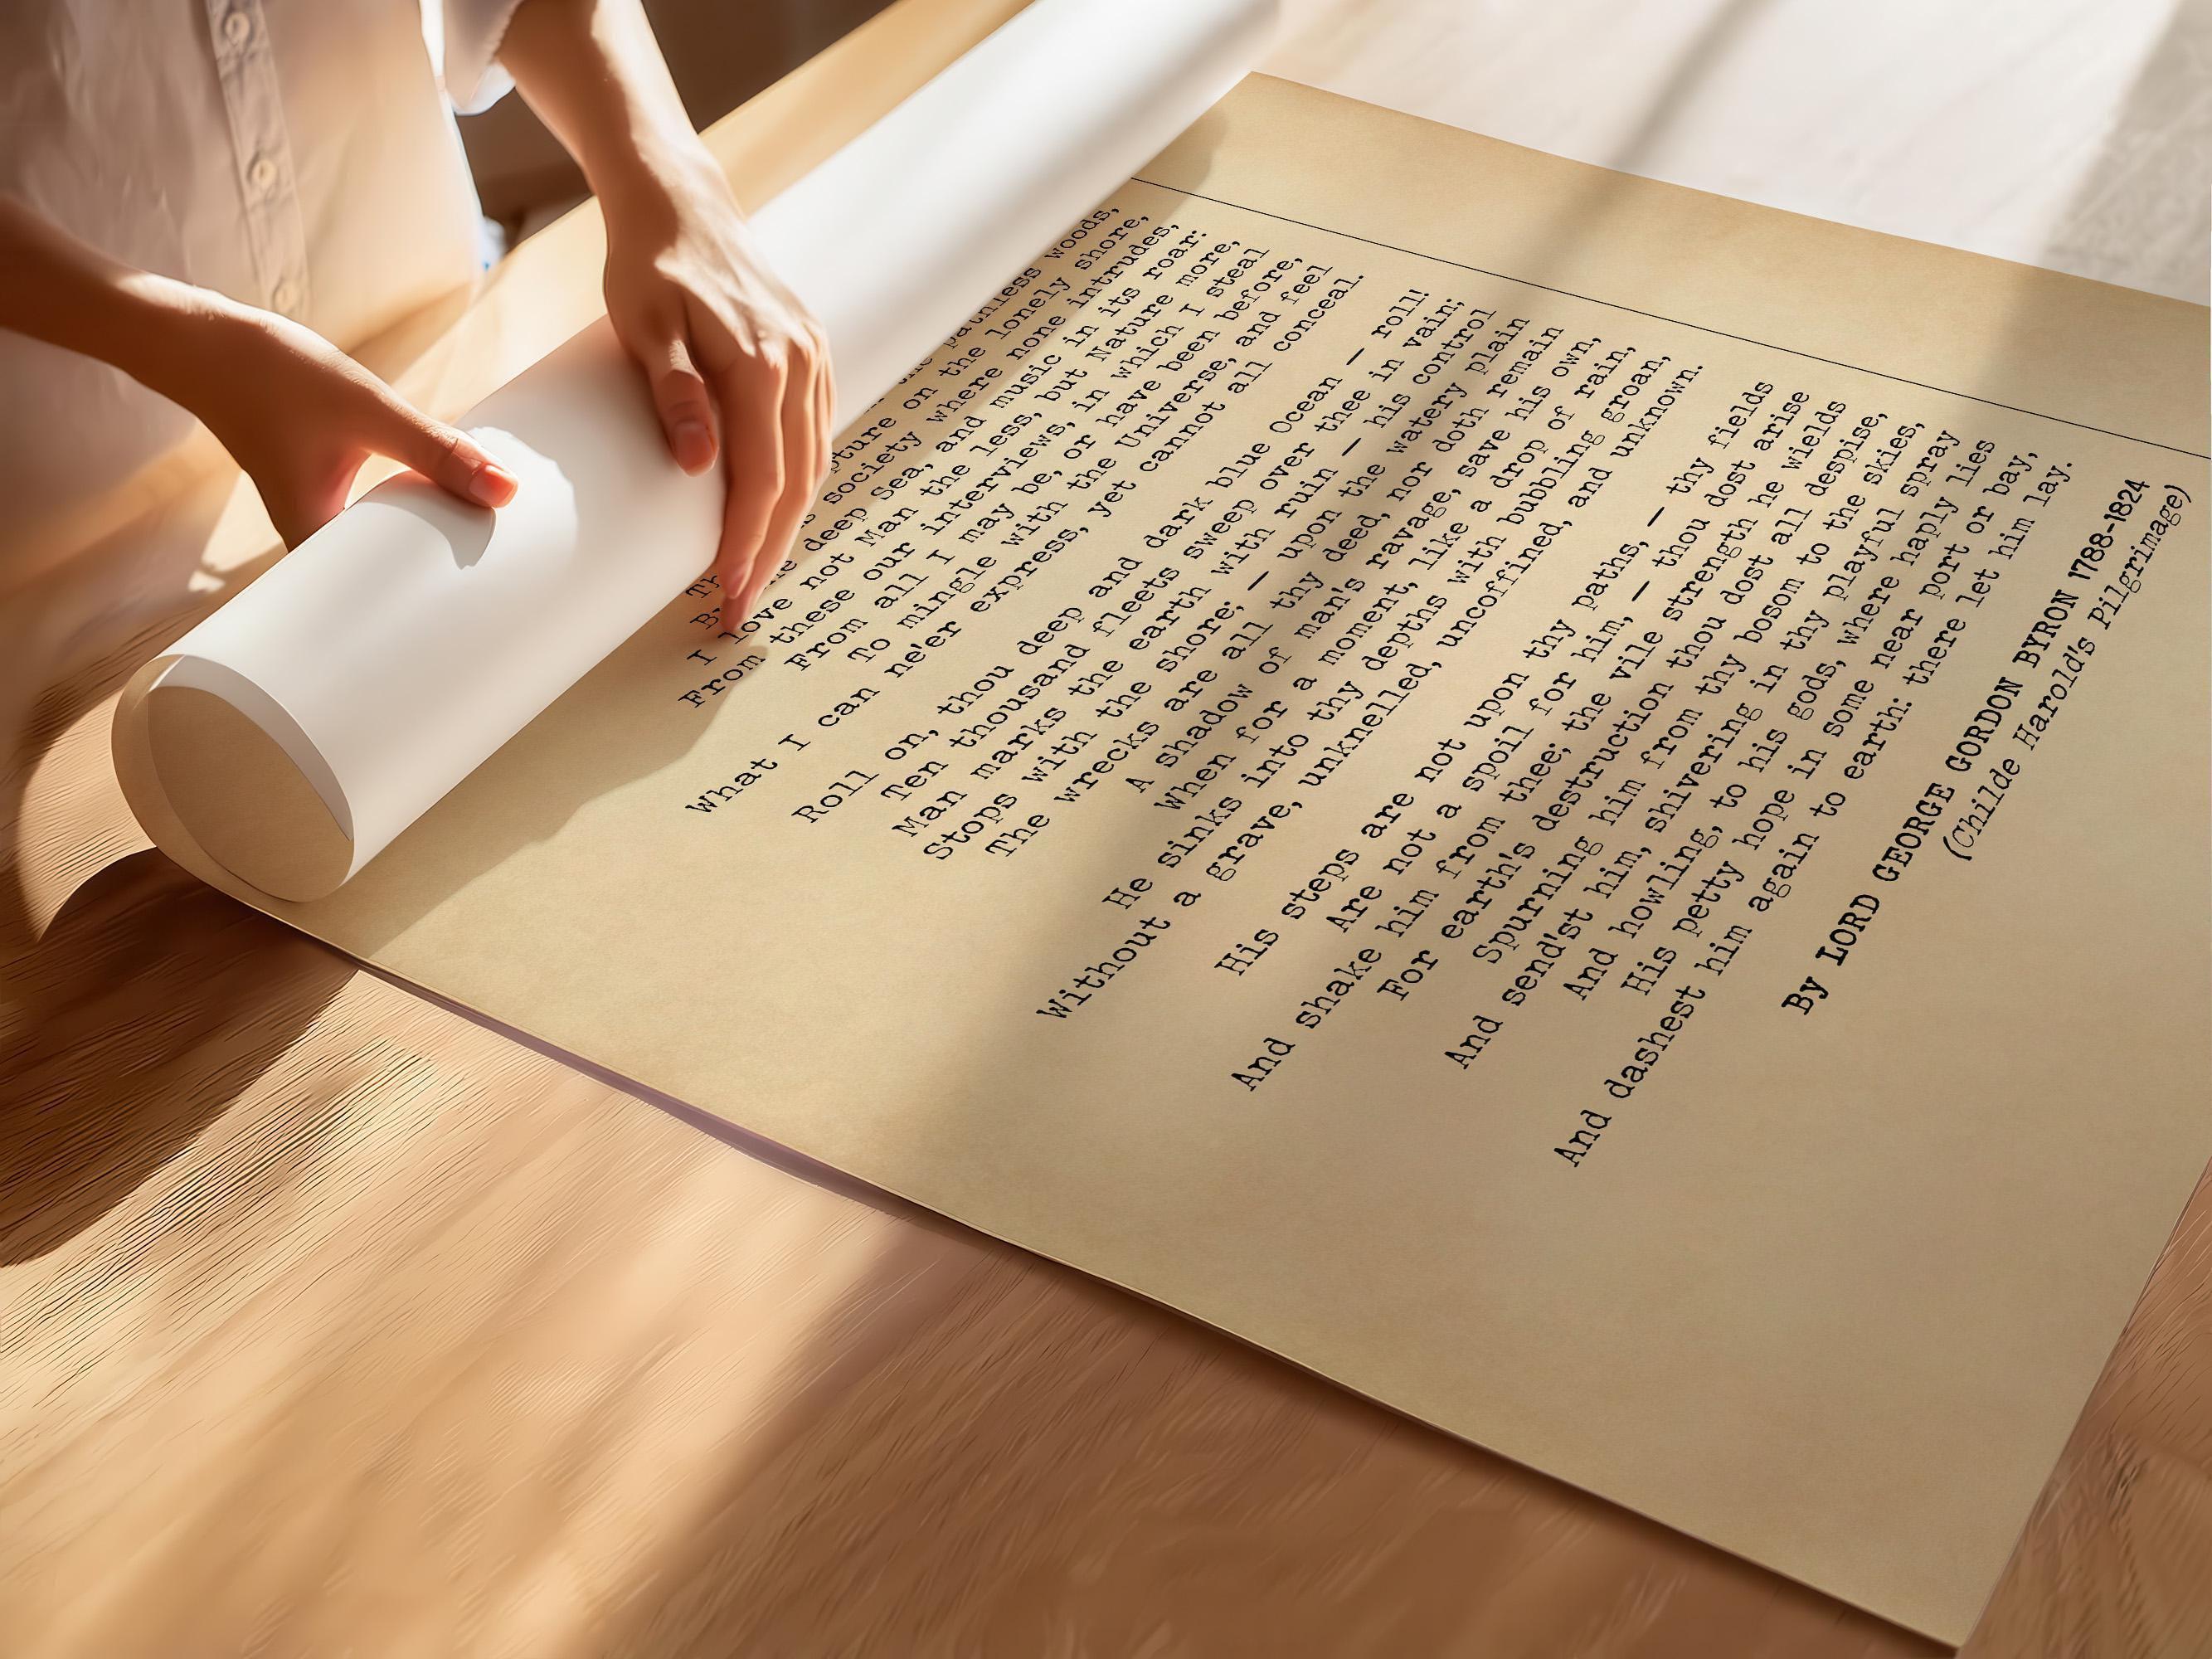 pathless woods,
on the lonely shore,
society where none intrudes,
deep Sea, and music in its roar:
I love not Man the less, but Nature more,
From these our interviews, in which I steal
From all I may be, or have been before,
To mingle with the Universe, and feel
What I can ne'er express, yet cannot all conceal.
Roll on, thou deep and dark blue Ocean — roll!
Ten thousand fleets sweep over thee in vain;
Man marks the earth with ruin — his control
Stops with the shore; — upon the watery plain
The wrecks are all thy deed, nor doth remain
A shadow of man's ravage, save his own,
When for a moment, like a drop of rain,
He sinks into thy depths with bubbling groan,
Without a grave, unknelled, uncoffined, and unknown.
His steps are not upon thy paths, — thy fields
Are not a spoil for him, — thou dost arise
And shake him from thee; the vile strength he wields
For earth's destruction thou dost all despise,
Spurning him from thy bosom to the skies,
And send'st him, shivering in thy playful spray
And howling, to his gods, where haply lies
His petty hope in some near port or bay,
And dashest him again to earth: there let him lay.
By LORD GEORGE GORDON BYRON 1788-1824
(Childe Harold's Pilgrimage)